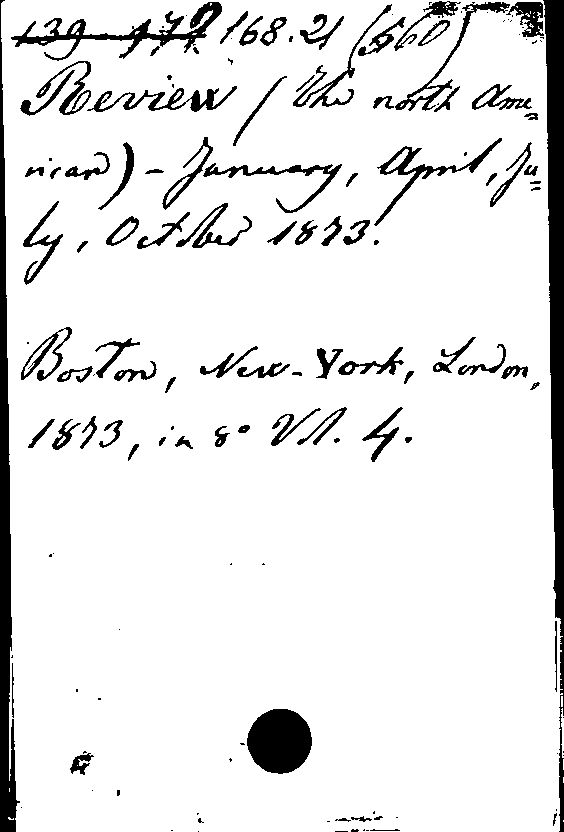 139 179 168.21 (560)
Review (The north Ame=
rican) - January, April, Ju=
ly, October 1873.
Boston, New-York, London,
1873, in 8° Vol. 4.